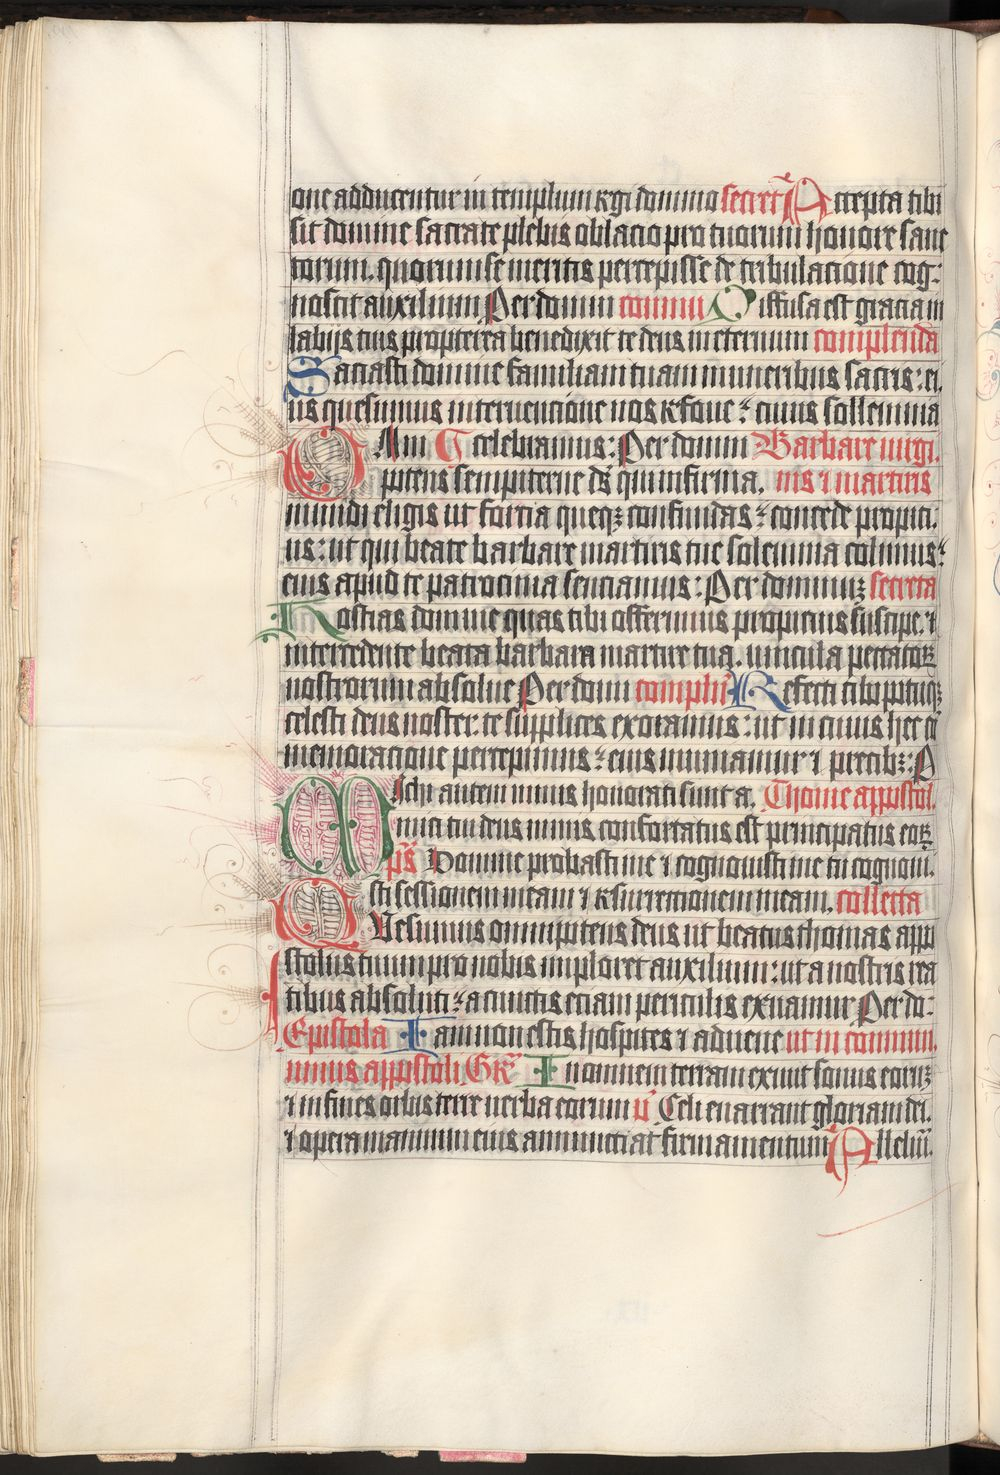 one adducentur in templum regi domino secret̃ Accepta tibi
sit domine sacrate plebis oblacio pro tuorum honore sanc
torum. quorum se meritis percepisse de tribulacione cog:
noscit auxilium Per domin̄ commu Diffusa est gracia in
labijs tuis propterea benedixit te deus in eternum complenda
Saciasti domine familiam tuam muneribus sacris: ei,
us quesumus interuencione nos refoue: cuius sollemnia
celebramus: Per domin̄ Barbare uirgi,
Omps sempiterne ds̄ qui infirma, nis ⁊ martiris
mundi eligis ut fortia queqꝫ confundas: concede propici,
us: ut qui beate barbare martiris tue solemnia colimus:
eius apud te patrocinia senciamus: Per dominuꝫ secreta
Hostias domine quas tibi offerimus propicius suscipe. ⁊
intercedente beata barbara martire tua. uincula peccatoꝝ
nostrorum absolue Per domī complē Refecti cibo potuqꝫ
celesti deus noster: te supplices exoramus: ut in cuius hec cō
memoracione percepimus: eius muniamur ⁊ precibꝫ: P
Michi autem nimis honorati sunt a, Thome appostol,
mici tui deus nimis confortatus est principatus eoꝝ
ps̄ Domine probasti me ⁊ cognouisti me tu cognoui,
sti sessionem meam ⁊ resurrectionem meam. collecta
Quesumus omnipotens deus ut beatus thomas appo
stolus tuum pro nobis imploret auxilium: ut a nostris rea
tibus absoluti: a cunctis eciam periculis exuamur Per do:
Epistola Iam non estis hospites ⁊ aduene ut in commun,
unius appostoli Gr̄ In omnem terram exiuit sonus eoruꝫ
⁊ in fines orbis terre uerba eorum v̄ Celi enarrant gloriam dei.
⁊ opera manuum eius annunciat firmamentum Alleluī.